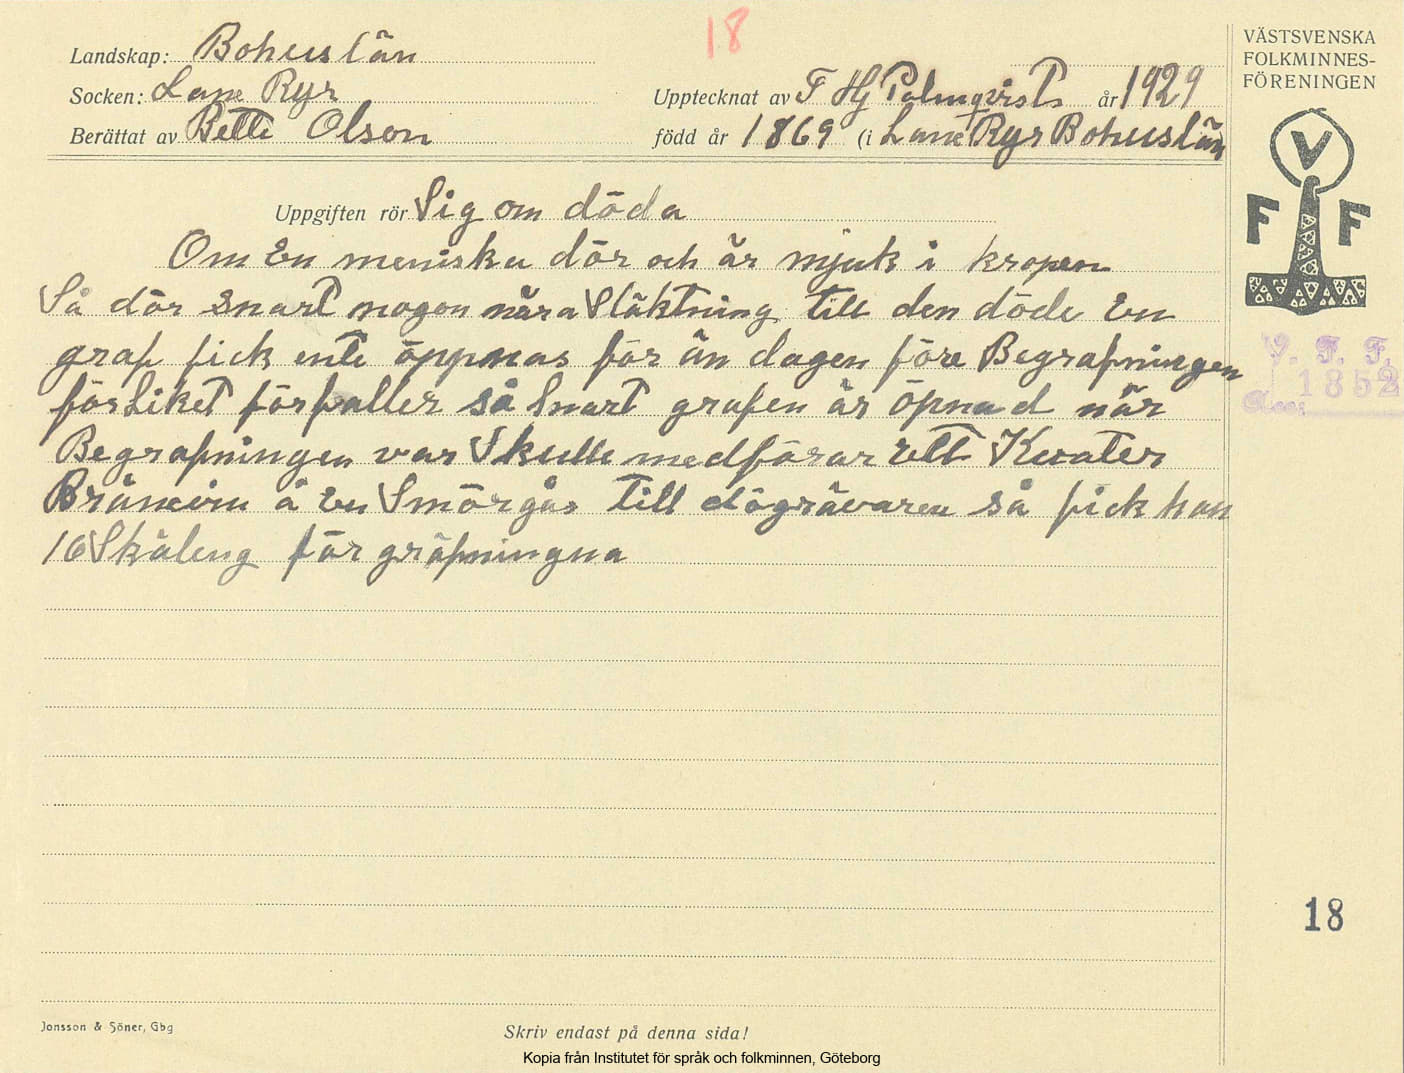 18
Landskap: Bohuslän
Socken: Lane Ryr
Berättat av Bette Olson
Upptecknat av F Hj Palmqvists år 1929
född år 1869 (i Lane Ryr Bohuslän
Uppgiften rör Sig om döda
Om En meniska dör och är mjuk i kropen
Så dör snart nogon nära Släktning till den döde En
graf fick ente öppnas för än dagen före Begrafningen
för Liket förfaller så Snart grafen är öpnad när
Begrafningen var Skulle medförar ett Kvater
Bränvin å en Smörgås till dögrävaren så fick han
16 Skäleng för gräfningna
VÄSTSVENSKA
FOLKMINNES-
FÖRENINGEN
V
F F
V. F. F.
1852
Acc:
18
Jonsson & Söner, Gbg
Skriv endast på denna sida!
Kopia från Institutet för språk och folkminnen, Göteborg